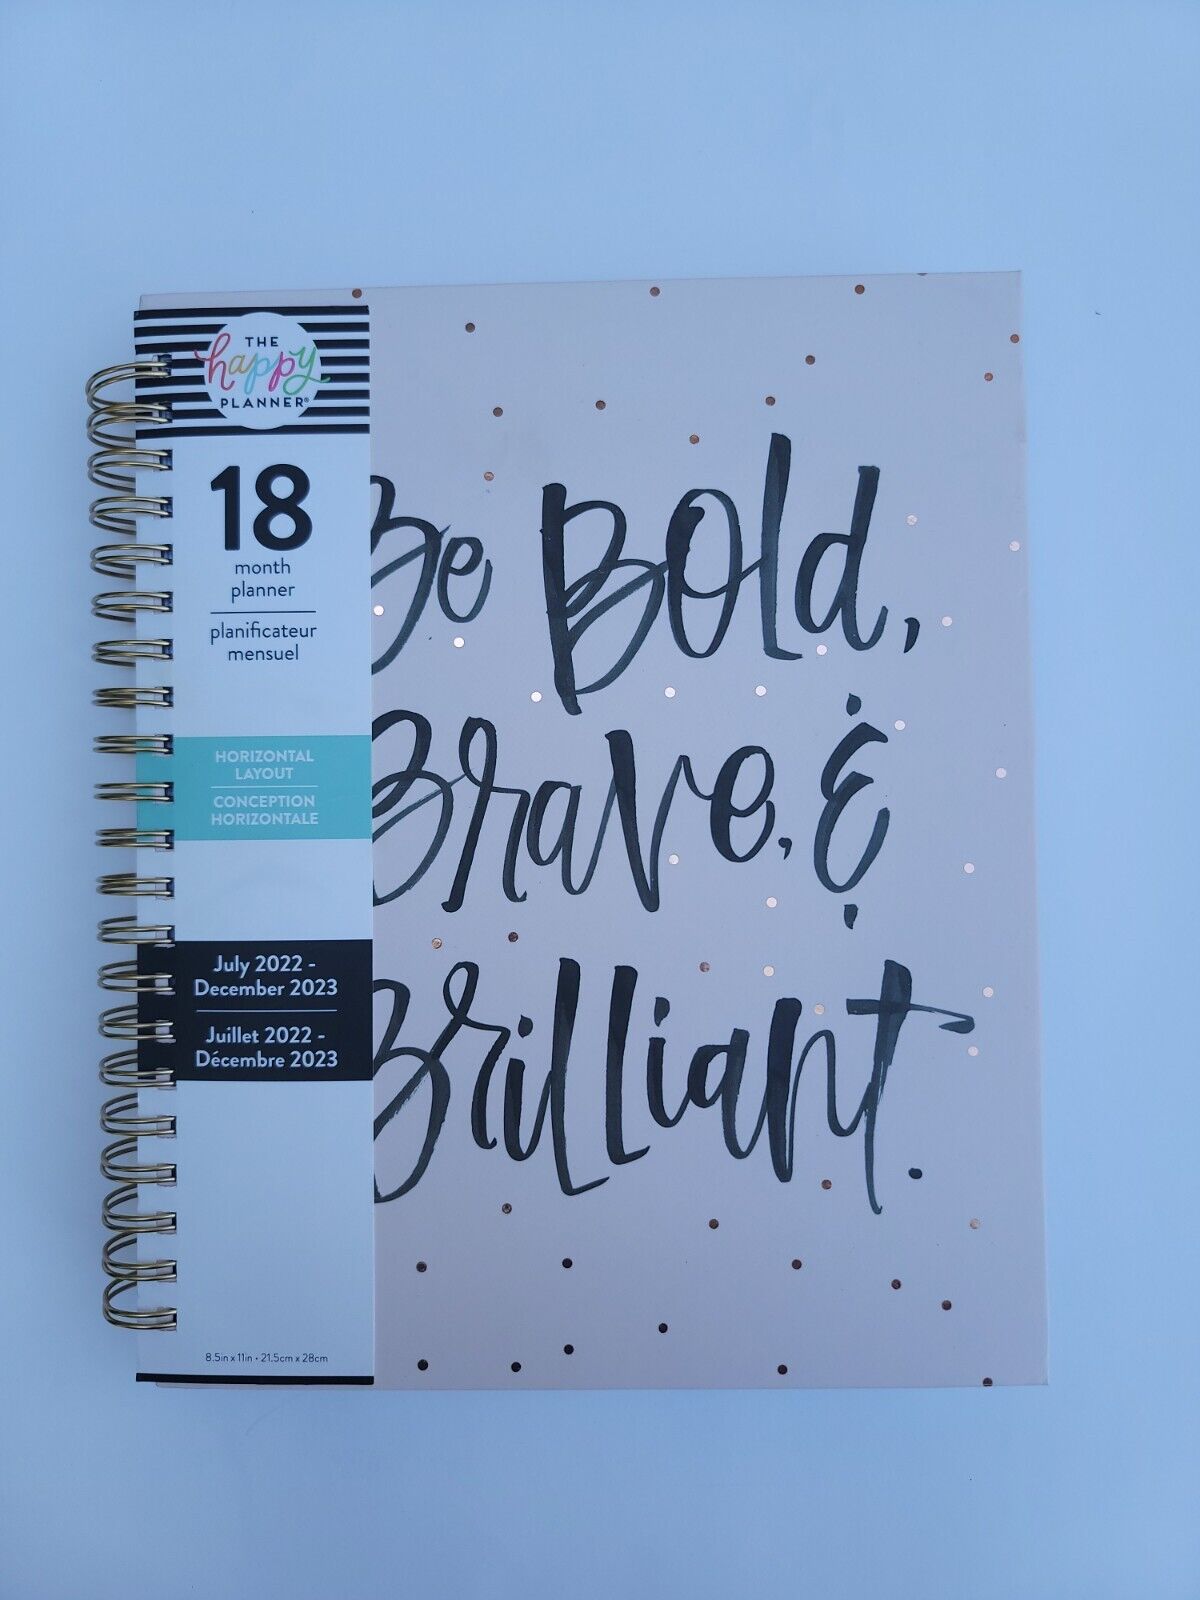 THE
happy
PLANNER®
18
month
planner
planificateur
mensuel
HORIZONTAL
LAYOUT
CONCEPTION
HORIZONTALE
July 2022 -
December 2023
Juillet 2022 -
Décembre 2023
8.5in x 11in • 21.5cm x 28cm
Be Bold,
Brave, &
Brilliant.